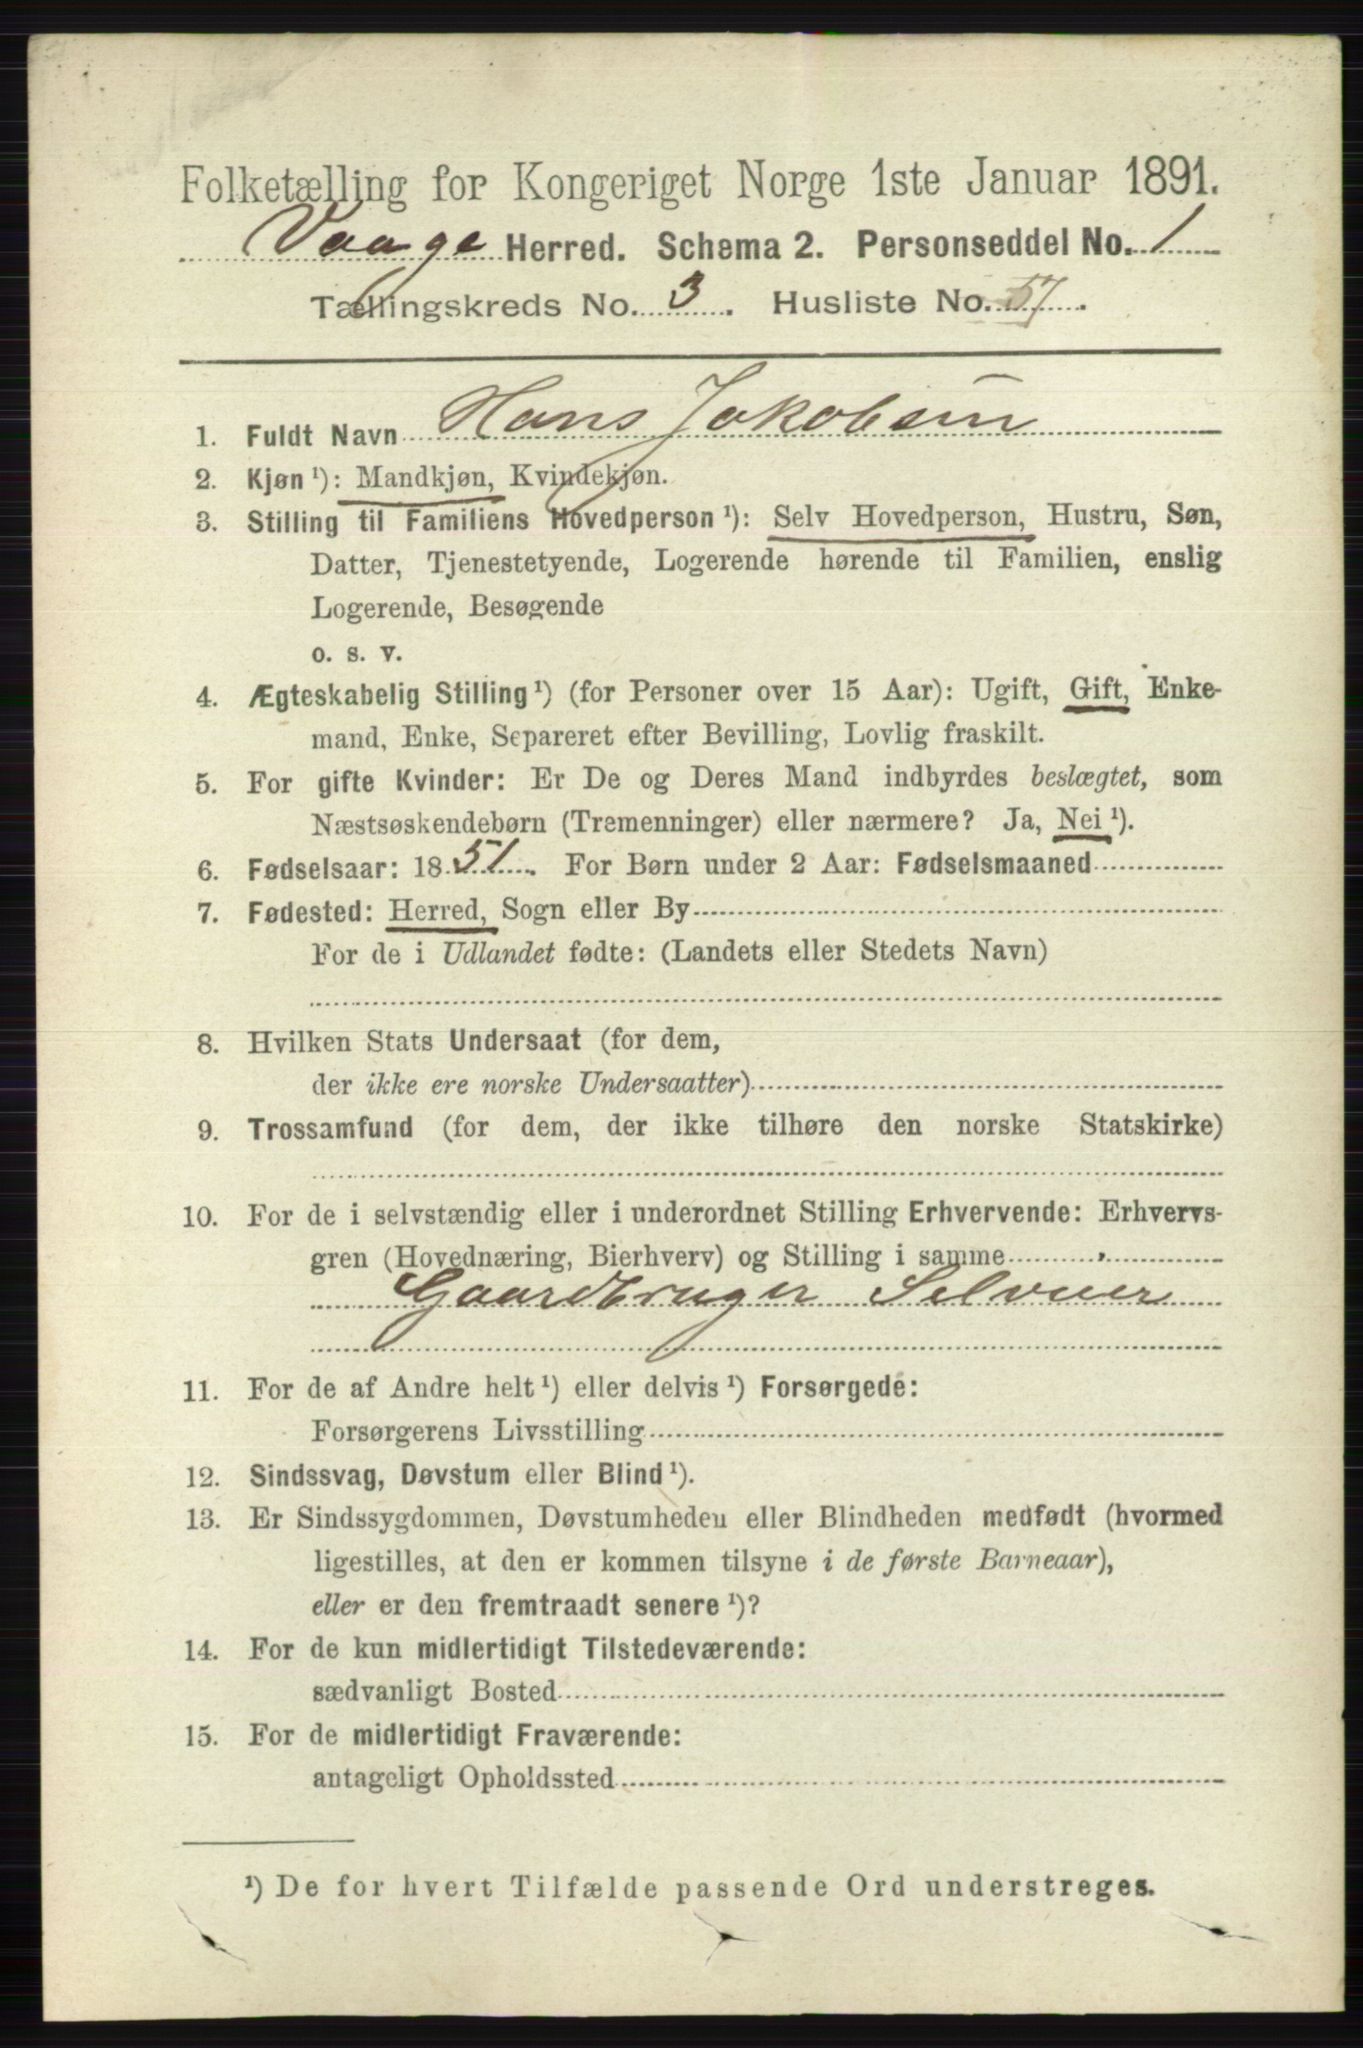 Folketælling for Kongeriget Norge 1ste Januar 1891.
Vaage Herred. Schema 2. Personseddel No. 1
Tællingskreds No. 3. Husliste No. 57.
1. Fuldt Navn Hans Jakobsen
2. Kjøn ¹): Mandkjøn, Kvindekjøn.
3. Stilling til Familiens Hovedperson ¹): Selv Hovedperson, Hustru, Søn,
Datter, Tjenestetyende, Logerende hørende til Familien, enslig
Logerende, Besøgende
o. s. v.
4. Ægteskabelig Stilling ¹) (for Personer over 15 Aar): Ugift, Gift, Enke-
mand, Enke, Separeret efter Bevilling, Lovlig fraskilt.
5. For gifte Kvinder: Er De og Deres Mand indbyrdes beslægtet, som
Næstsøskendebørn (Tremenninger) eller nærmere? Ja, Nei ¹).
6. Fødselsaar: 1851. For Børn under 2 Aar: Fødselsmaaned
7. Fødested: Herred, Sogn eller By
For de i Udlandet fødte: (Landets eller Stedets Navn)
8. Hvilken Stats Undersaat (for dem,
der ikke ere norske Undersaatter)
9. Trossamfund (for dem, der ikke tilhøre den norske Statskirke)
10. For de i selvstændig eller i underordnet Stilling Erhvervende: Erhvervs-
gren (Hovednæring, Bierhverv) og Stilling i samme
Gaardbruger Selveier
11. For de af Andre helt ¹) eller delvis ¹) Forsørgede:
Forsørgerens Livsstilling
12. Sindssvag, Døvstum eller Blind ¹).
13. Er Sindssygdommen, Døvstumheden eller Blindheden medfødt (hvormed
ligestilles, at den er kommen tilsyne i de første Barneaar),
eller er den fremtraadt senere ¹)?
14. For de kun midlertidigt Tilstedeværende:
sædvanligt Bosted
15. For de midlertidigt Fraværende:
antageligt Opholdssted
¹) De for hvert Tilfælde passende Ord understreges.